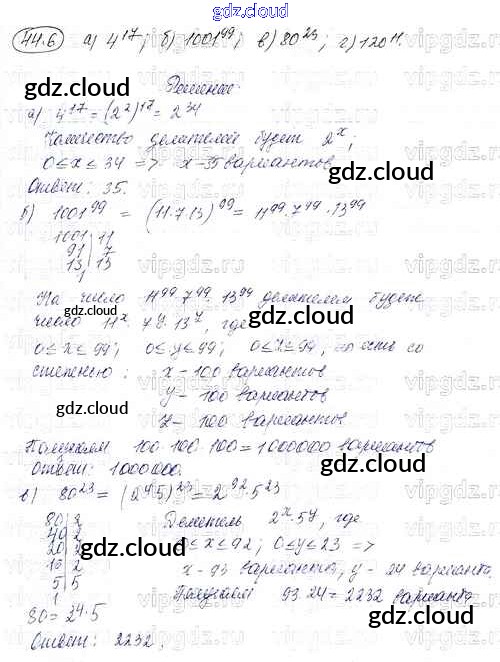 gdz.cloud
44.6 а) 4^17; б) 1001^99; в) 80^23; г) 120^11.
Решение:
а) 4^17 = (2^2)^17 = 2^34
Количество делителей будет 2^x;
0≤x≤34 => x-35 вариантов
Ответ: 35.
б) 1001^99 = (11·7·13)^99 = 11^99·7^99·13^99
1001|11
91|7
13|13
1
На число 11^99·7^99·13^99 делителем будет
число 11^x·7^y·13^z, где
0≤x≤99; 0≤y≤99; 0≤z≤99, то есть со
степенью: x-100 вариантов
y-100 вариантов
z-100 вариантов
Получаем 100·100·100=1000000 вариантов
Ответ: 1000000.
в) 80^23 = (2^4·5)^23 = 2^92·5^23
80|2 Делитель 2^x·5^y, где
40|2
20|2 0≤x≤92; 0≤y≤23 =>
10|2 x-93 варианта, y-24 варианта
5|5
1 Получаем 93·24=2232 варианта
80=2^4·5
Ответ: 2232.